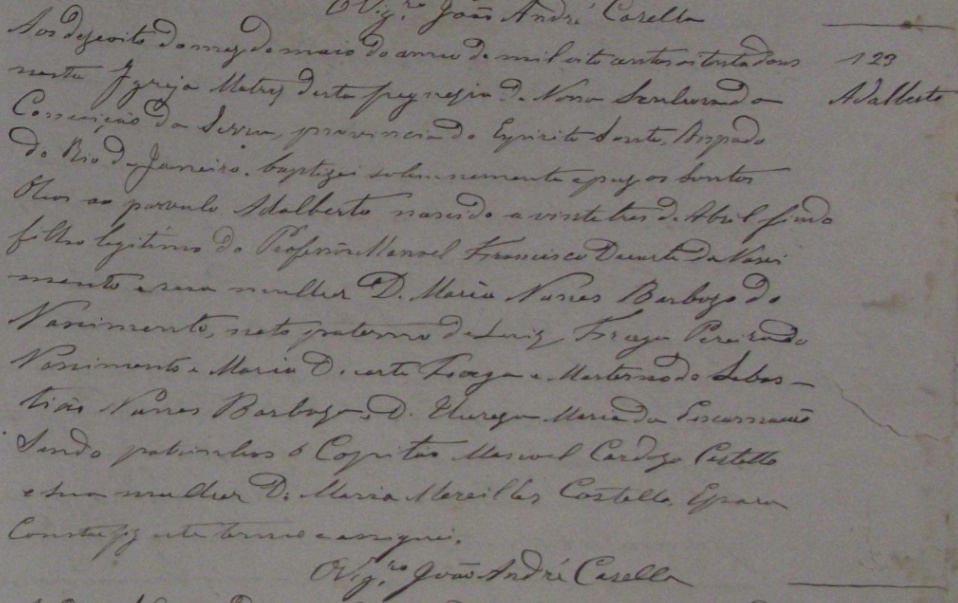 O Vig.ro João André Casella
Aos dezoito do mez de maio do anno de mil oito centos oitenta dous
nesta Igreja Matriz desta freguezia de Nossa Senhora da
Conceição da Serra, provincia do Espirito Santo, Bispado
do Rio de Janeiro, baptizei solemnemente e puz os Santos
Oleos ao parvulo Adalberto nascido a vinte tres de Abril findo
filho legitimo do Professor Manoel Francisco Duarte do Nasci
mento e sua mulher D. Maria Nunes Barboza do
Nascimento, neto paterno de Luiz Fraga Pereira do
Nascimento e Maria Duarte Fraga e Materno de Sebas-
tião Nunes Barboza e D. Thereza Maria da Encarnação
Sendo padrinhos o Capitão Manoel Cardozo Castello
e sua mulher D. Maria Meirelles Castello. E para
Constar fiz este termo e assignei.
O Vig.ro João André Casella
123
Adalberto